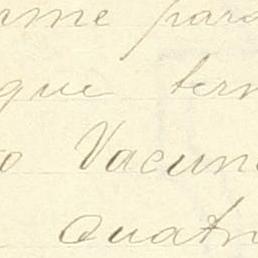 rme para
que ter
o Vacuno
Quatr